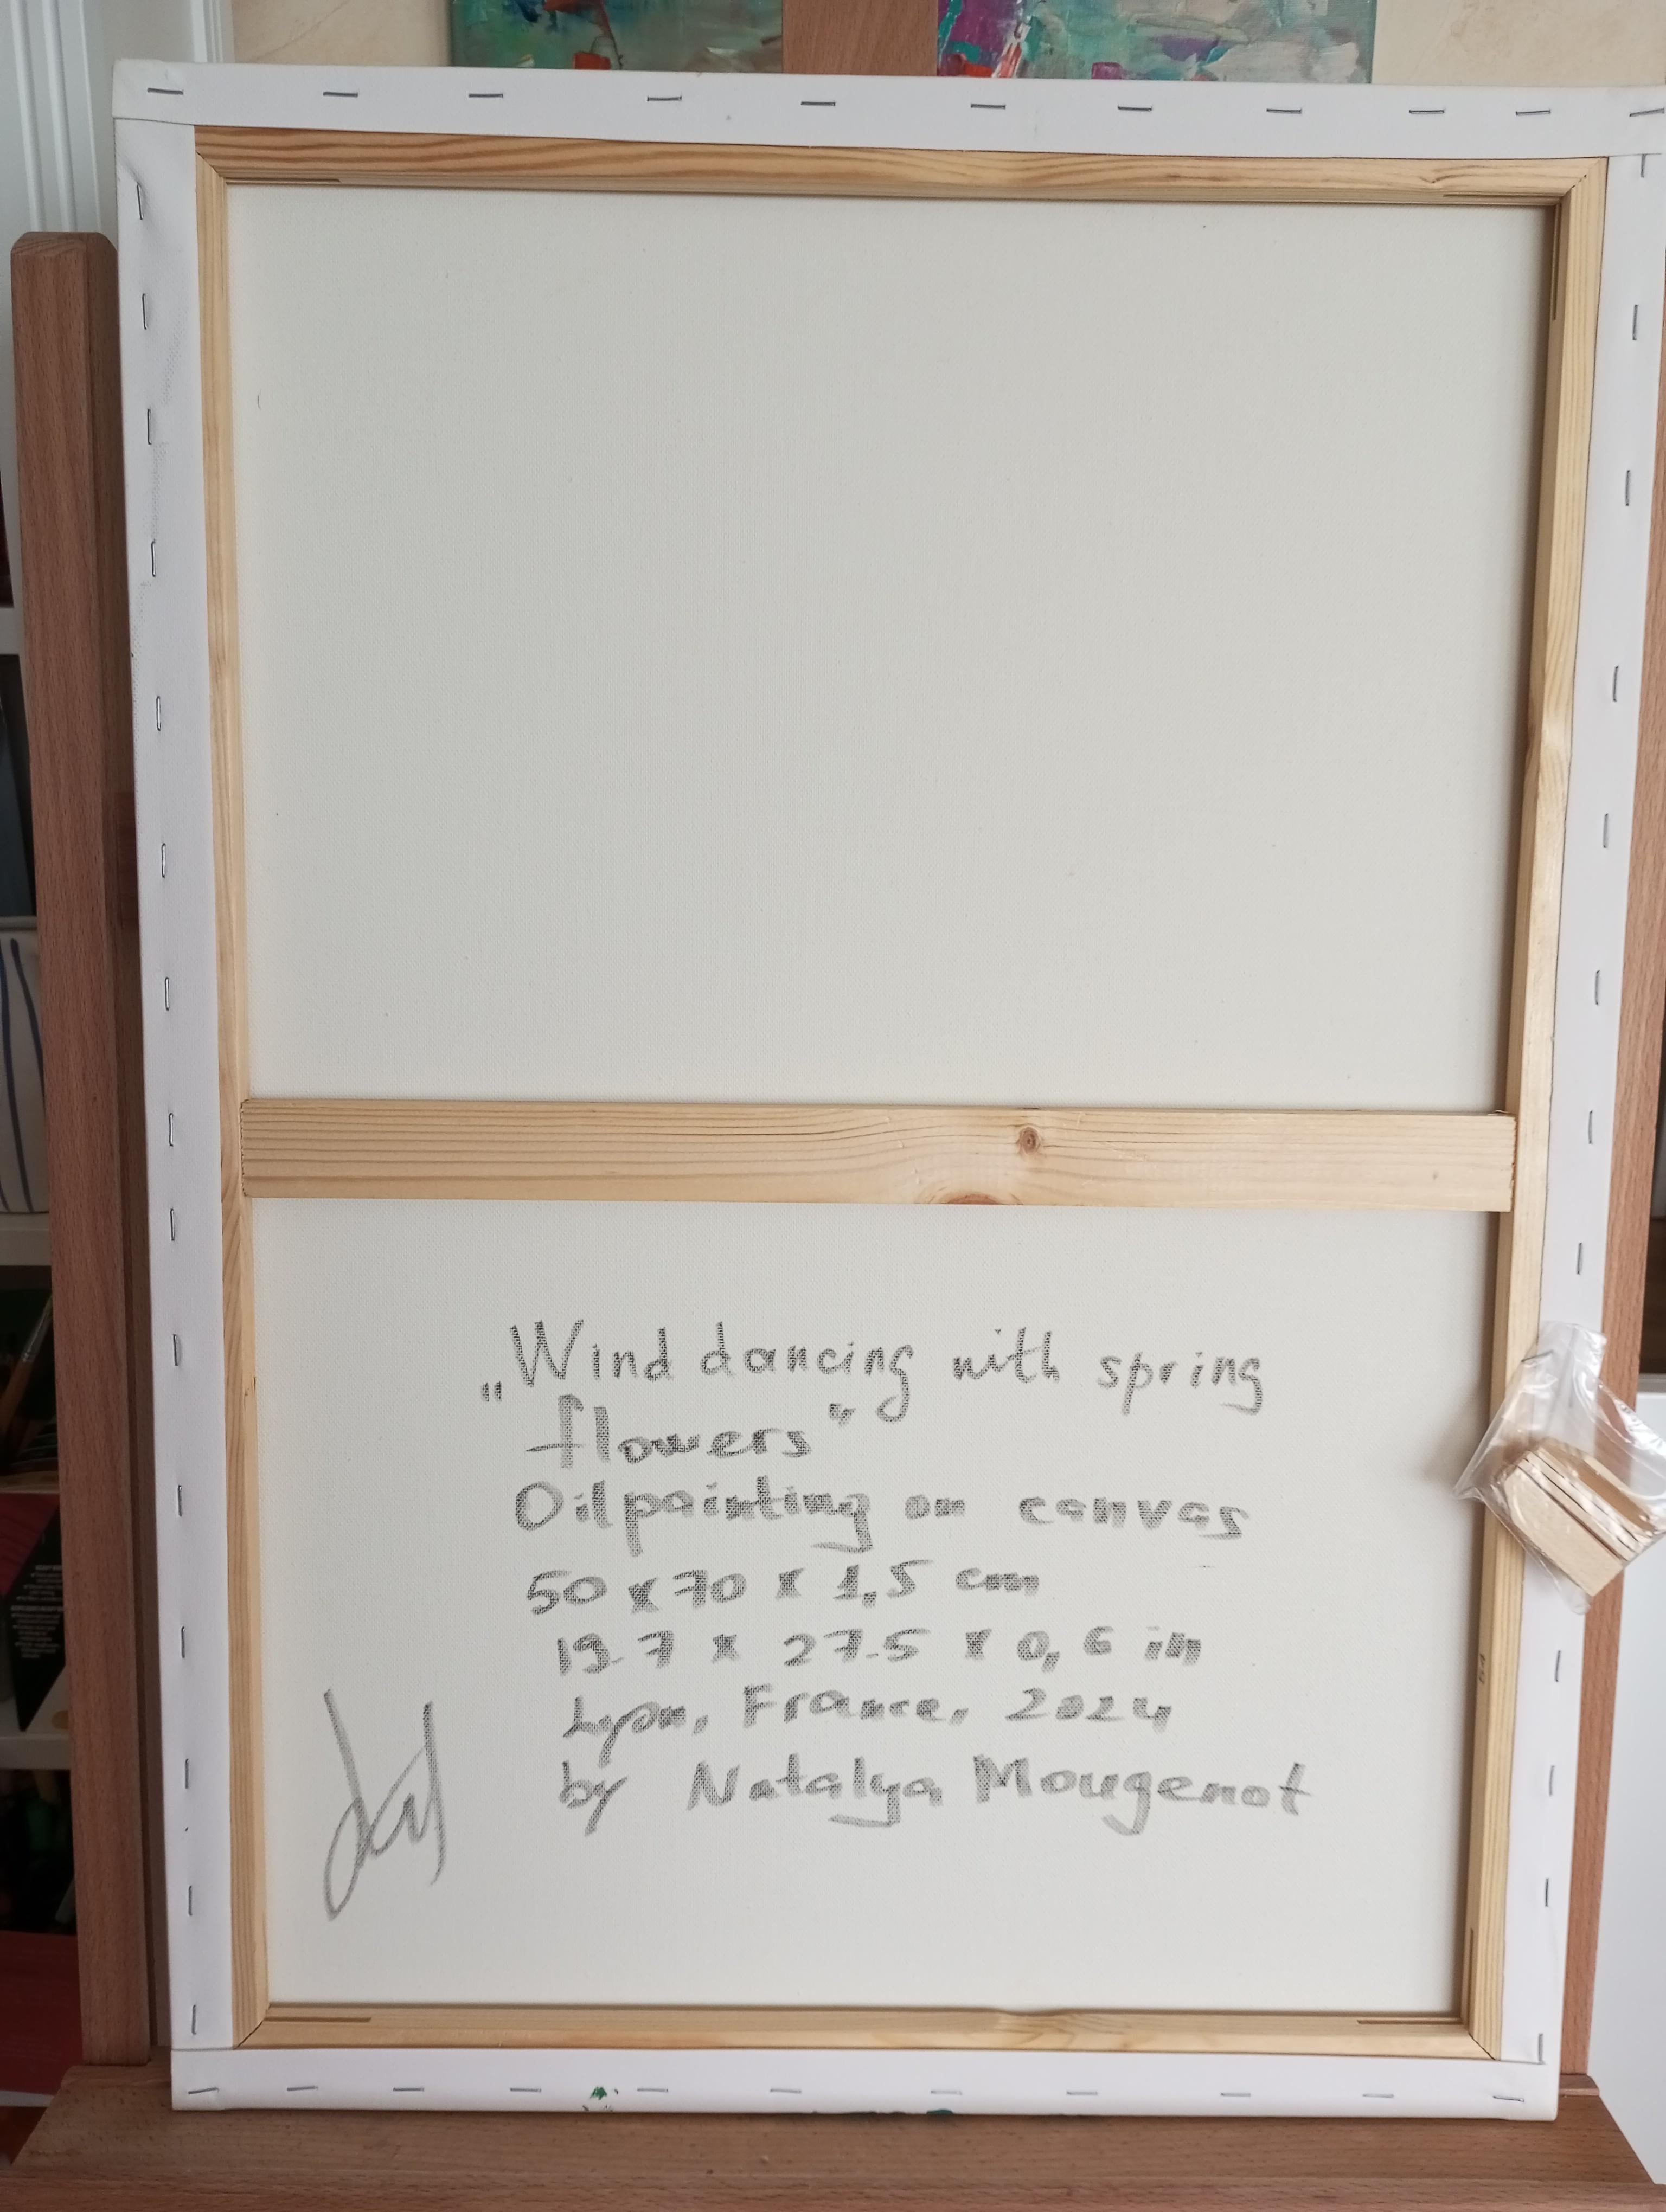 „Wind dancing with spring
flowers"
Oilpainting on canvas
50 x 70 x 1,5 cm
19.7 x 27.5 x 0,6 in
Lyon, France, 2024
by Natalya Mougenot